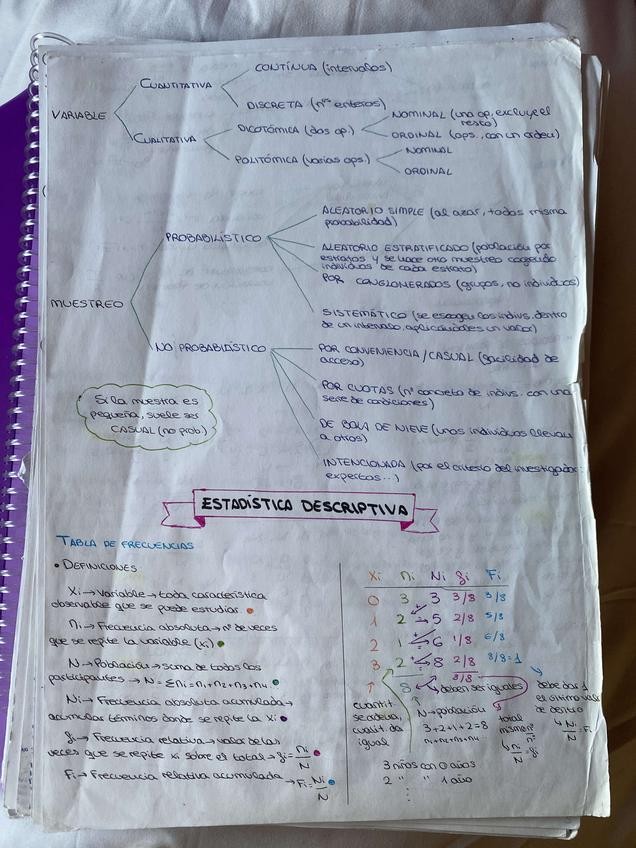 VARIABLE
CUANTITATIVA
CONTÍNUA (intervalos)
DISCRETA (nºs enteros)
CUALITATIVA
DICOTÓMICA (dos op.)
NOMINAL (una op, excluye el
resto)
ORDINAL (ops. con un orden)
POLITÓMICA (varias ops.)
NOMINAL
ORDINAL
MUESTREO
PROBABILÍSTICO
ALEATORIO SIMPLE (al azar, todos misma
probabilidad)
ALEATORIO ESTRATIFICADO (población por
estratos y se hace otro muestreo cogiendo
individuos de cada estrato)
POR CONGLOMERADOS (grupos, no individuos)
SISTEMÁTICO (se escogen los indivs. dentro
de un intervalo, aplicándoles un valor)
NO PROBABILÍSTICO
POR CONVENIENCIA / CASUAL (facilidad de
acceso)
POR CUOTAS (nº concreto de indivs. con una
serie de condiciones)
DE BOLA DE NIEVE (unos individuos llevan
a otros)
INTENCIONADA (por el criterio del investigador:
expertos...)
Si la muestra es
pequeña, suele ser
CASUAL (no prob.)
ESTADÍSTICA DESCRIPTIVA
TABLA DE FRECUENCIAS
• DEFINICIONES
Xi → Variable → toda característica
observable que se puede estudiar.
ni → Frecuencia absoluta → nº de veces
que se repite la variable (xi)
N → Población → suma de todos los
participantes → N = Σni = n1 + n2 + n3 + n4.
Ni → Frecuencia absoluta acumulada →
acumular términos donde se repite la Xi
fi → Frecuencia relativa → valor de las
veces que se repite xi sobre el total → fi = ni/N
Fi → Frecuencia relativa acumulada → Fi = Ni/N
Xi ni Ni fi Fi
0 3 3 3/8 3/8
1 2 5 2/8 5/8
2 1 6 1/8 6/8
3 2 8 2/8 8/8 = 1
8 8/8
deben ser iguales
cuantit.
se añade,
cualit. da
igual
N → población
3+2+1+2=8
n1+n2+n3+n4
total
mismo nº
nº
ni/N = fi
debe dar 1
el último valor
de dentro
Ni/N = Fi
3 niños con 0 años
2 " " 1 año